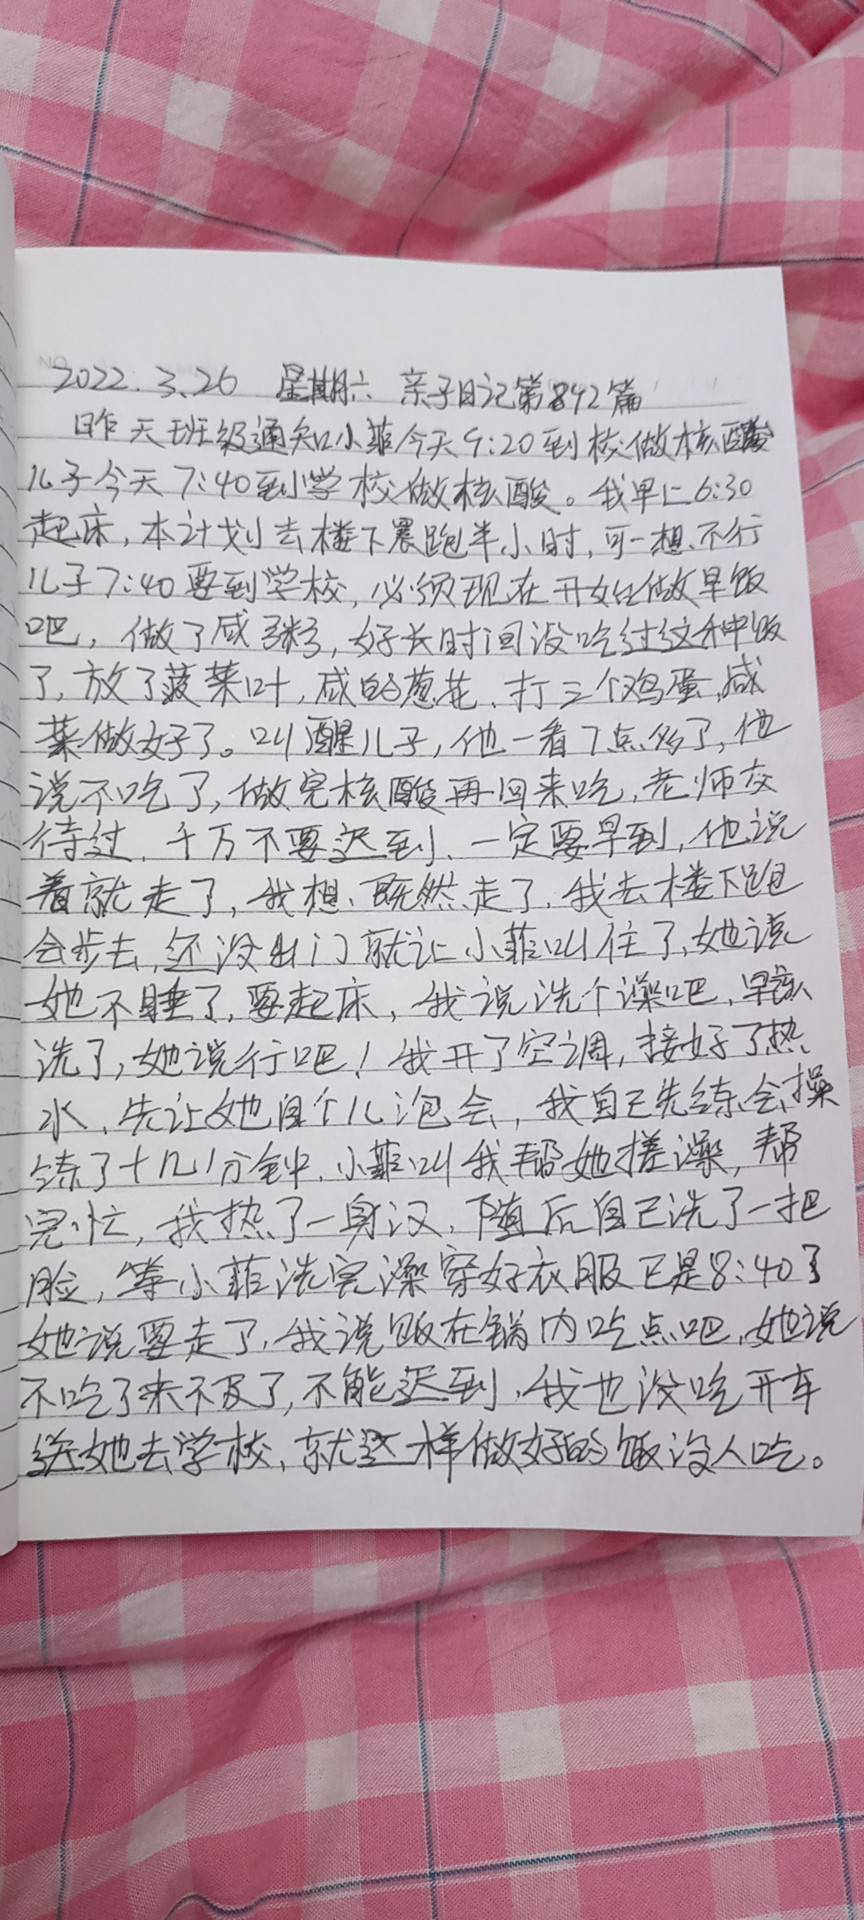 2022.3.26 星期六 亲子日记第892篇
昨天班级通知小菲今天9:20到校做核酸
儿子今天7:40到学校做核酸。我早上6:30
起床,本计划去楼下晨跑半小时,可一想、不行
儿子7:40要到学校,必须现在开始做早饭
吧,做了咸粥,好长时间没吃过这种饭
了,放了菠菜叶,咸的葱花、打三个鸡蛋,咸
菜做好了。叫醒儿子,他一看7点多了,他
说不吃了,做完核酸再回来吃,老师交
待过,千万不要迟到、一定要早到,他说
着就走了,我想、既然走了,我去楼下跑
会步去,还没出门就让小菲叫住了,她说
她不睡了,要起床,我说洗个澡吧,早该
洗了,她说行吧!我开了空调,接好了热
水,先让她自个儿泡会,我自己先练会操
练了十几分钟,小菲叫我帮她搓澡,帮
完忙,我热了一身汉,随后自己洗了一把
脸,等小菲洗完澡穿好衣服已是8:40了
她说要走了,我说饭在锅内吃点吧,她说
不吃了来不及了,不能迟到,我也没吃开车
送她去学校,就这样做好的饭没人吃。